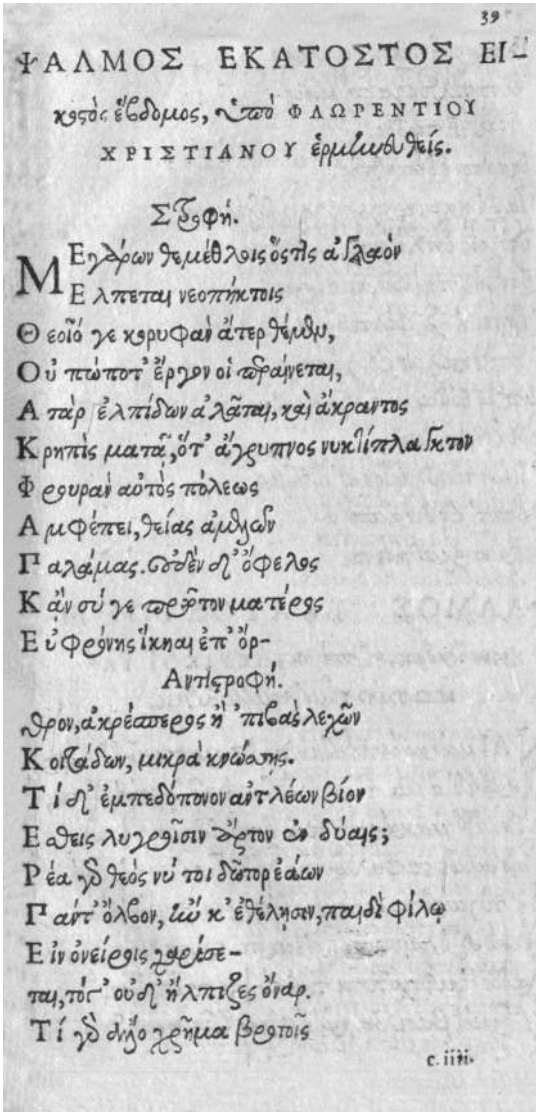 39
ΨΑΛΜΟΣ ΕΚΑΤΟΣΤΟΣ ΕΙ-
κοστὸς ἕβδομος, ὑπὸ ΦΛΩΡΕΝΤΙΟΥ
ΧΡΙΣΤΙΑΝΟΥ ἑρμηνευθείς.
Στροφή.
ΜΕγάρων θεμέθλοις ὅστις ἀγλαὸν
Ελπεται νεοπήκτοις
Θεοῖό γε κορυφὰν ἄτερ θέμεν,
Οὐ πώποτ' ἔργον οἱ περαίνεται,
Ατὰρ ἐλπίδων ἀλᾶται, καὶ ἄκραντος
Κρηπὶς ματᾷ, ὅτ' ἄγρυπνος νυκτίπλαγκτον
Φρουρὰν αὐτὸς πόλεως
Αμφέπει, θείας ἀμελῶν
Παλάμας. οὐδὲν δ' ὄφελος
Κἄν σύ γε πρῶτον ματέρος
Εὐφρόνης ἵκηαι ἐπ' ὄρ-
Αντιστροφή.
θρον, ἀκρέσπερος ἢ 'πιβαὶς λεχῶν
Κοιτάδων, μικρὰ κνώσσης.
Τί δ' ἐμπεδόπονον ἀντλέων βίον
Εσθεις λυγροῖσιν ἄρτον ἐν δύαις;
Ρέα γὰρ θεὸς νύ τοι δῶτορ ἐάων
Πάντ' ὄλβον, ἤν κ' ἐθέλησιν, παιδὶ φίλῳ
Εἰν ὀνείροις χαρίσε-
ται, τόγ' οὐδ' ἤλπιζες ὄναρ.
Τί γὰρ χρῆμα βροτοῖς
c. iiii.